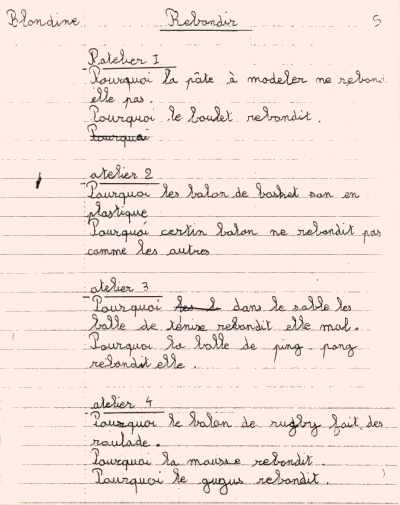 Blondine Rebondir 5
atelier 1
Pourquoi la pâte à modeler ne rebond
elle pas.
Pourquoi le boulet rebondit.
Pourquoi
atelier 2
Pourquoi les balon de basket son en
plastique
Pourquoi certin balon ne rebondit pas
comme les autres
atelier 3
Pourquoi les l dans le sable les
balle de ténise rebondit elle mal.
Pourquoi la balle de ping-pong
rebondit elle.
atelier 4
Pourquoi le balon de rugby fait des
roulade.
Pourquoi la mousse rebondit.
Pourquoi le gugus rebondit.